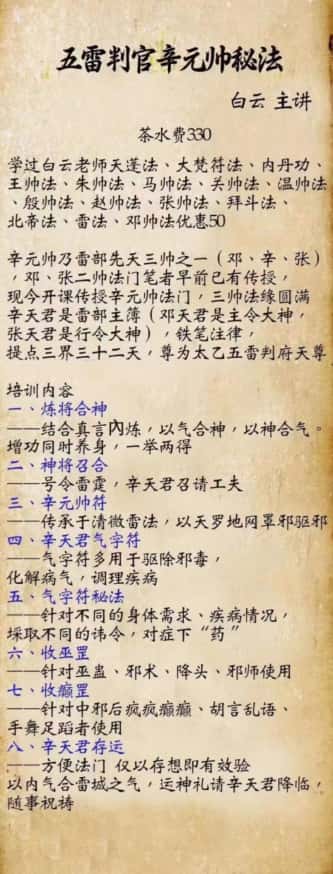 五雷判官辛元帅秘法
白云 主讲
茶水费330
学过白云老师天蓬法、大梵符法、内丹功、
王帅法、朱帅法、马帅法、关帅法、温帅法
、殷帅法、赵帅法、张帅法、拜斗法、
北帝法、雷法、邓帅法优惠50
辛元帅乃雷部先天三帅之一（邓、辛、张）
，邓、张二帅法门笔者早前已有传授，
现今开课传授辛元帅法门，三帅法缘圆满
辛天君是雷部主薄（邓天君是主令大神，
张天君是行令大神），铁笔注律，
提点三界三十二天，尊为太乙五雷判府天尊
培训内容
一、炼将合神
——结合真言內炼，以气合神，以神合气。
增功同时养身，一举两得
二、神将召合
——号令雷霆，辛天君召请工夫
三、辛元帅符
——传承于清微雷法，以天罗地网罩邪驱邪
四、辛天君气字符
——气字符多用于驱除邪毒，
化解病气，调理疾病
五、气字符秘法
——针对不同的身体需求、疾病情况，
埰取不同的讳令，对症下“药”
六、收巫罡
——针对巫蛊、邪术、降头、邪师使用
七、收癫罡
——针对中邪后疯疯癫癫、胡言乱语、
手舞足蹈者使用
八、辛天君存运
——方便法门 仅以存想即有效验
以内气合雷城之气，运神礼请辛天君降临，
随事祝祷